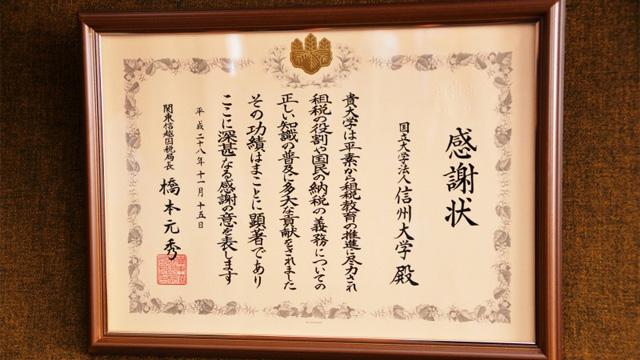 感謝状
国立大学法人信州大学殿
貴大学は平素から租税教育の推進に尽力され
租税の役割や国民の納税の義務についての
正しい知識の普及に多大な貢献をされました
その功績はまことに顕著であり
ここに深甚なる感謝の意を表します
平成二十八年十一月十五日
関東信越国税局長 橋本元秀